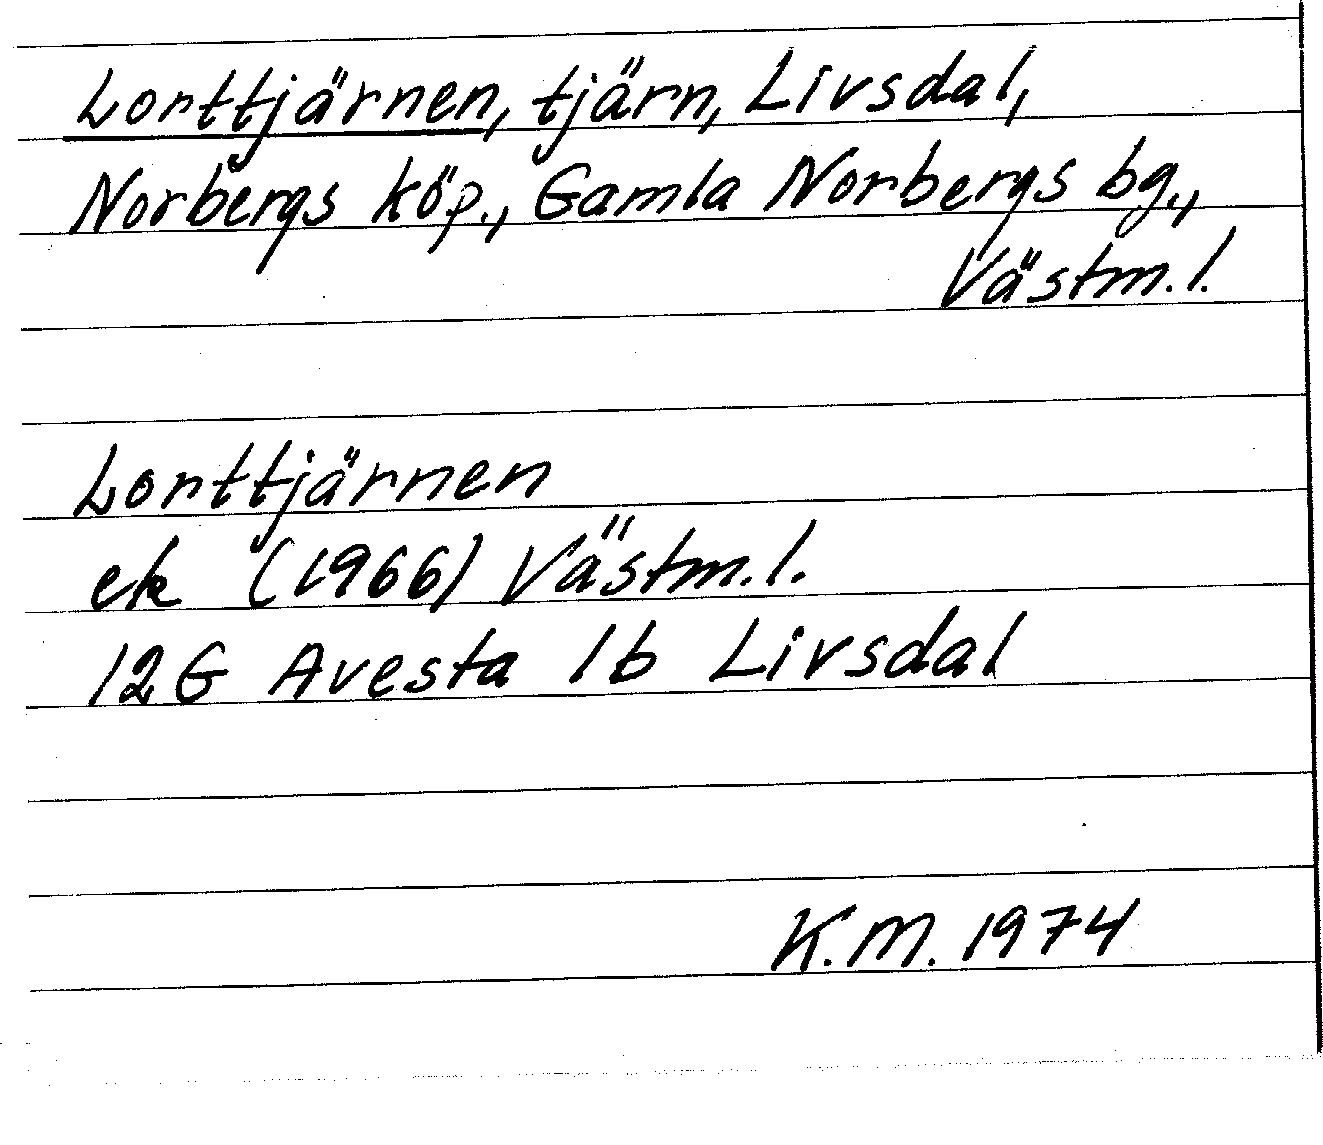 Lorttjärnen, tjärn, Livsdal,
Norbergs köp., Gamla Norbergs bg.,
Västm.l.
Lorttjärnen
ek (1966) Västm.l.
12G Avesta 1b Livsdal
K.M. 1974